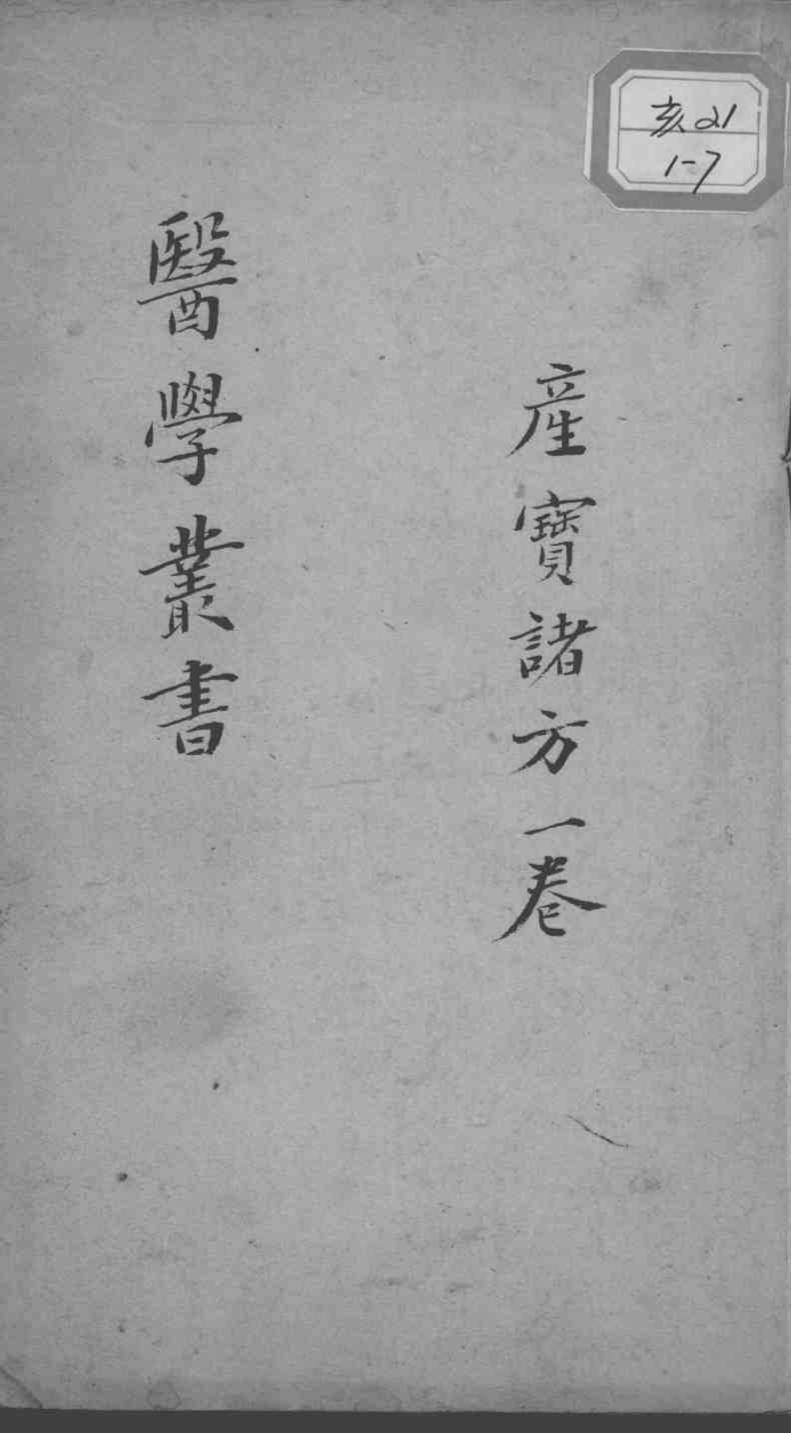 亥21
1-7
産寶諸方一卷
醫學叢書